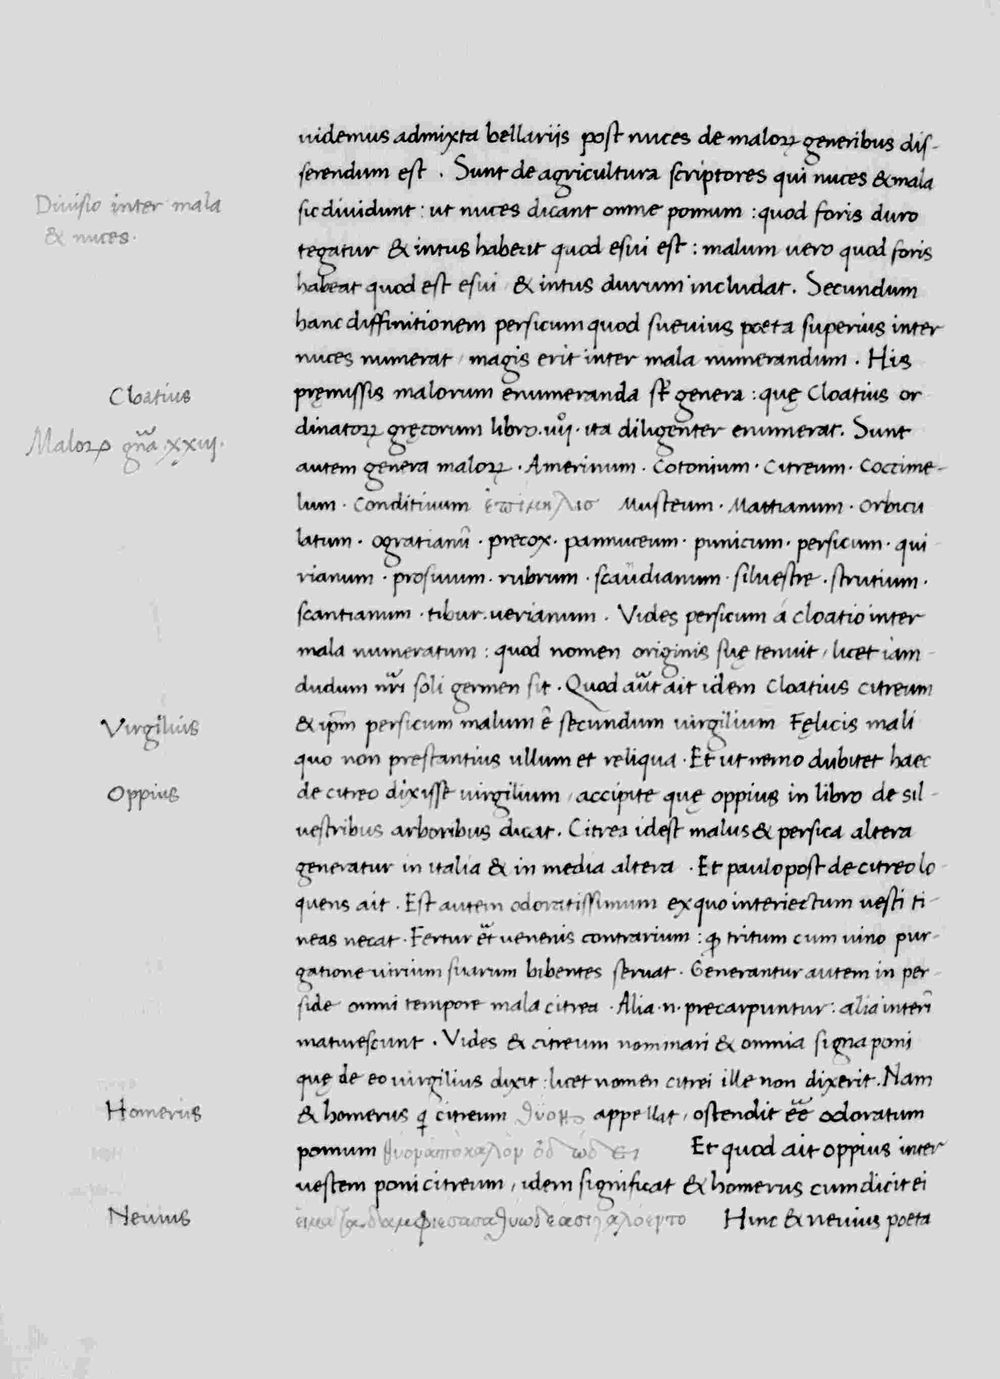 uidemus admixta bellariis post nuces de maloꝝ generibus dis-
serendum est . Sunt de agricultura scriptores qui nuces & mala
Diuisio inter mala
& nuces.
sic diuidunt : ut nuces dicant omne pomum : quod foris duro
tegatur & intus habeat quod esui est : malum uero quod foris
habeat quod est esui & intus durum includat . Secundum
hanc diffinitionem persicum quod sueuius poeta superius inter
nuces numerat / magis erit inter mala numerandum . His
Cloatius
pręmissis malorum enumeranda st̄ genera : quę Cloatius or
Maloꝝ gn̄a .xxiii.
dinatoꝝ gręcorum libro .iiii. ita diligenter enumerat . Sunt
autem genera maloꝝ . Amerinum . Cotonium . Citreum . Coccime-
lum . Conditiuum ἐπιμηλισ Musteum . Mattianum . Orbicu
latum . ogratianū . precox . pannuceum . punicum . persicum . qui-
rianum . prosiuum . rubrum . scaudianum . siluestre . strutium .
scantianum . tibur . uerianum . Vides persicum á cloatio inter
mala numeratum : quod nomen originis suę tenuit / licet iam-
dudum nr̄i soli germen sit . Quod aūt ait idem Cloatius citreum
Virgilius
& ip̄m persicum malum ē secundum uirgilium Fęlicis mali
quo non prestantius ullum et reliqua . Et ut nemo dubitet haec
Oppius
de citreo dixisse uirgilium / accipite quę oppius in libro de sil-
uestribus arboribus dicat . Citrea idest malus & persica altera
generatur in italia & in media altera . Et paulo post de citreo lo-
quens ait . Est autem odoratissimum ex quo interiectum uesti ti-
neas necat . Fertur ēt uenenis contrarium : ꝙ tritum cum uino pur-
gatione uirium suarum bibentes seruat . Generantur autem in per-
side omni tempore mala citrea . Alia .n. precarpuntur : alia interī
maturescunt . Vides & citreum nominari & omnia signa poni
quę de eo uirgilius dixit : licet nomen citrei ille non dixerit . Nam
Homerus
& homerus q citreum appellat / ostendit eē odoratum
pomum Et quod ait oppius inter
uestem poni citreum / idem significat & homerus cum dicit ei
Neuius
Hinc & neuius poeta